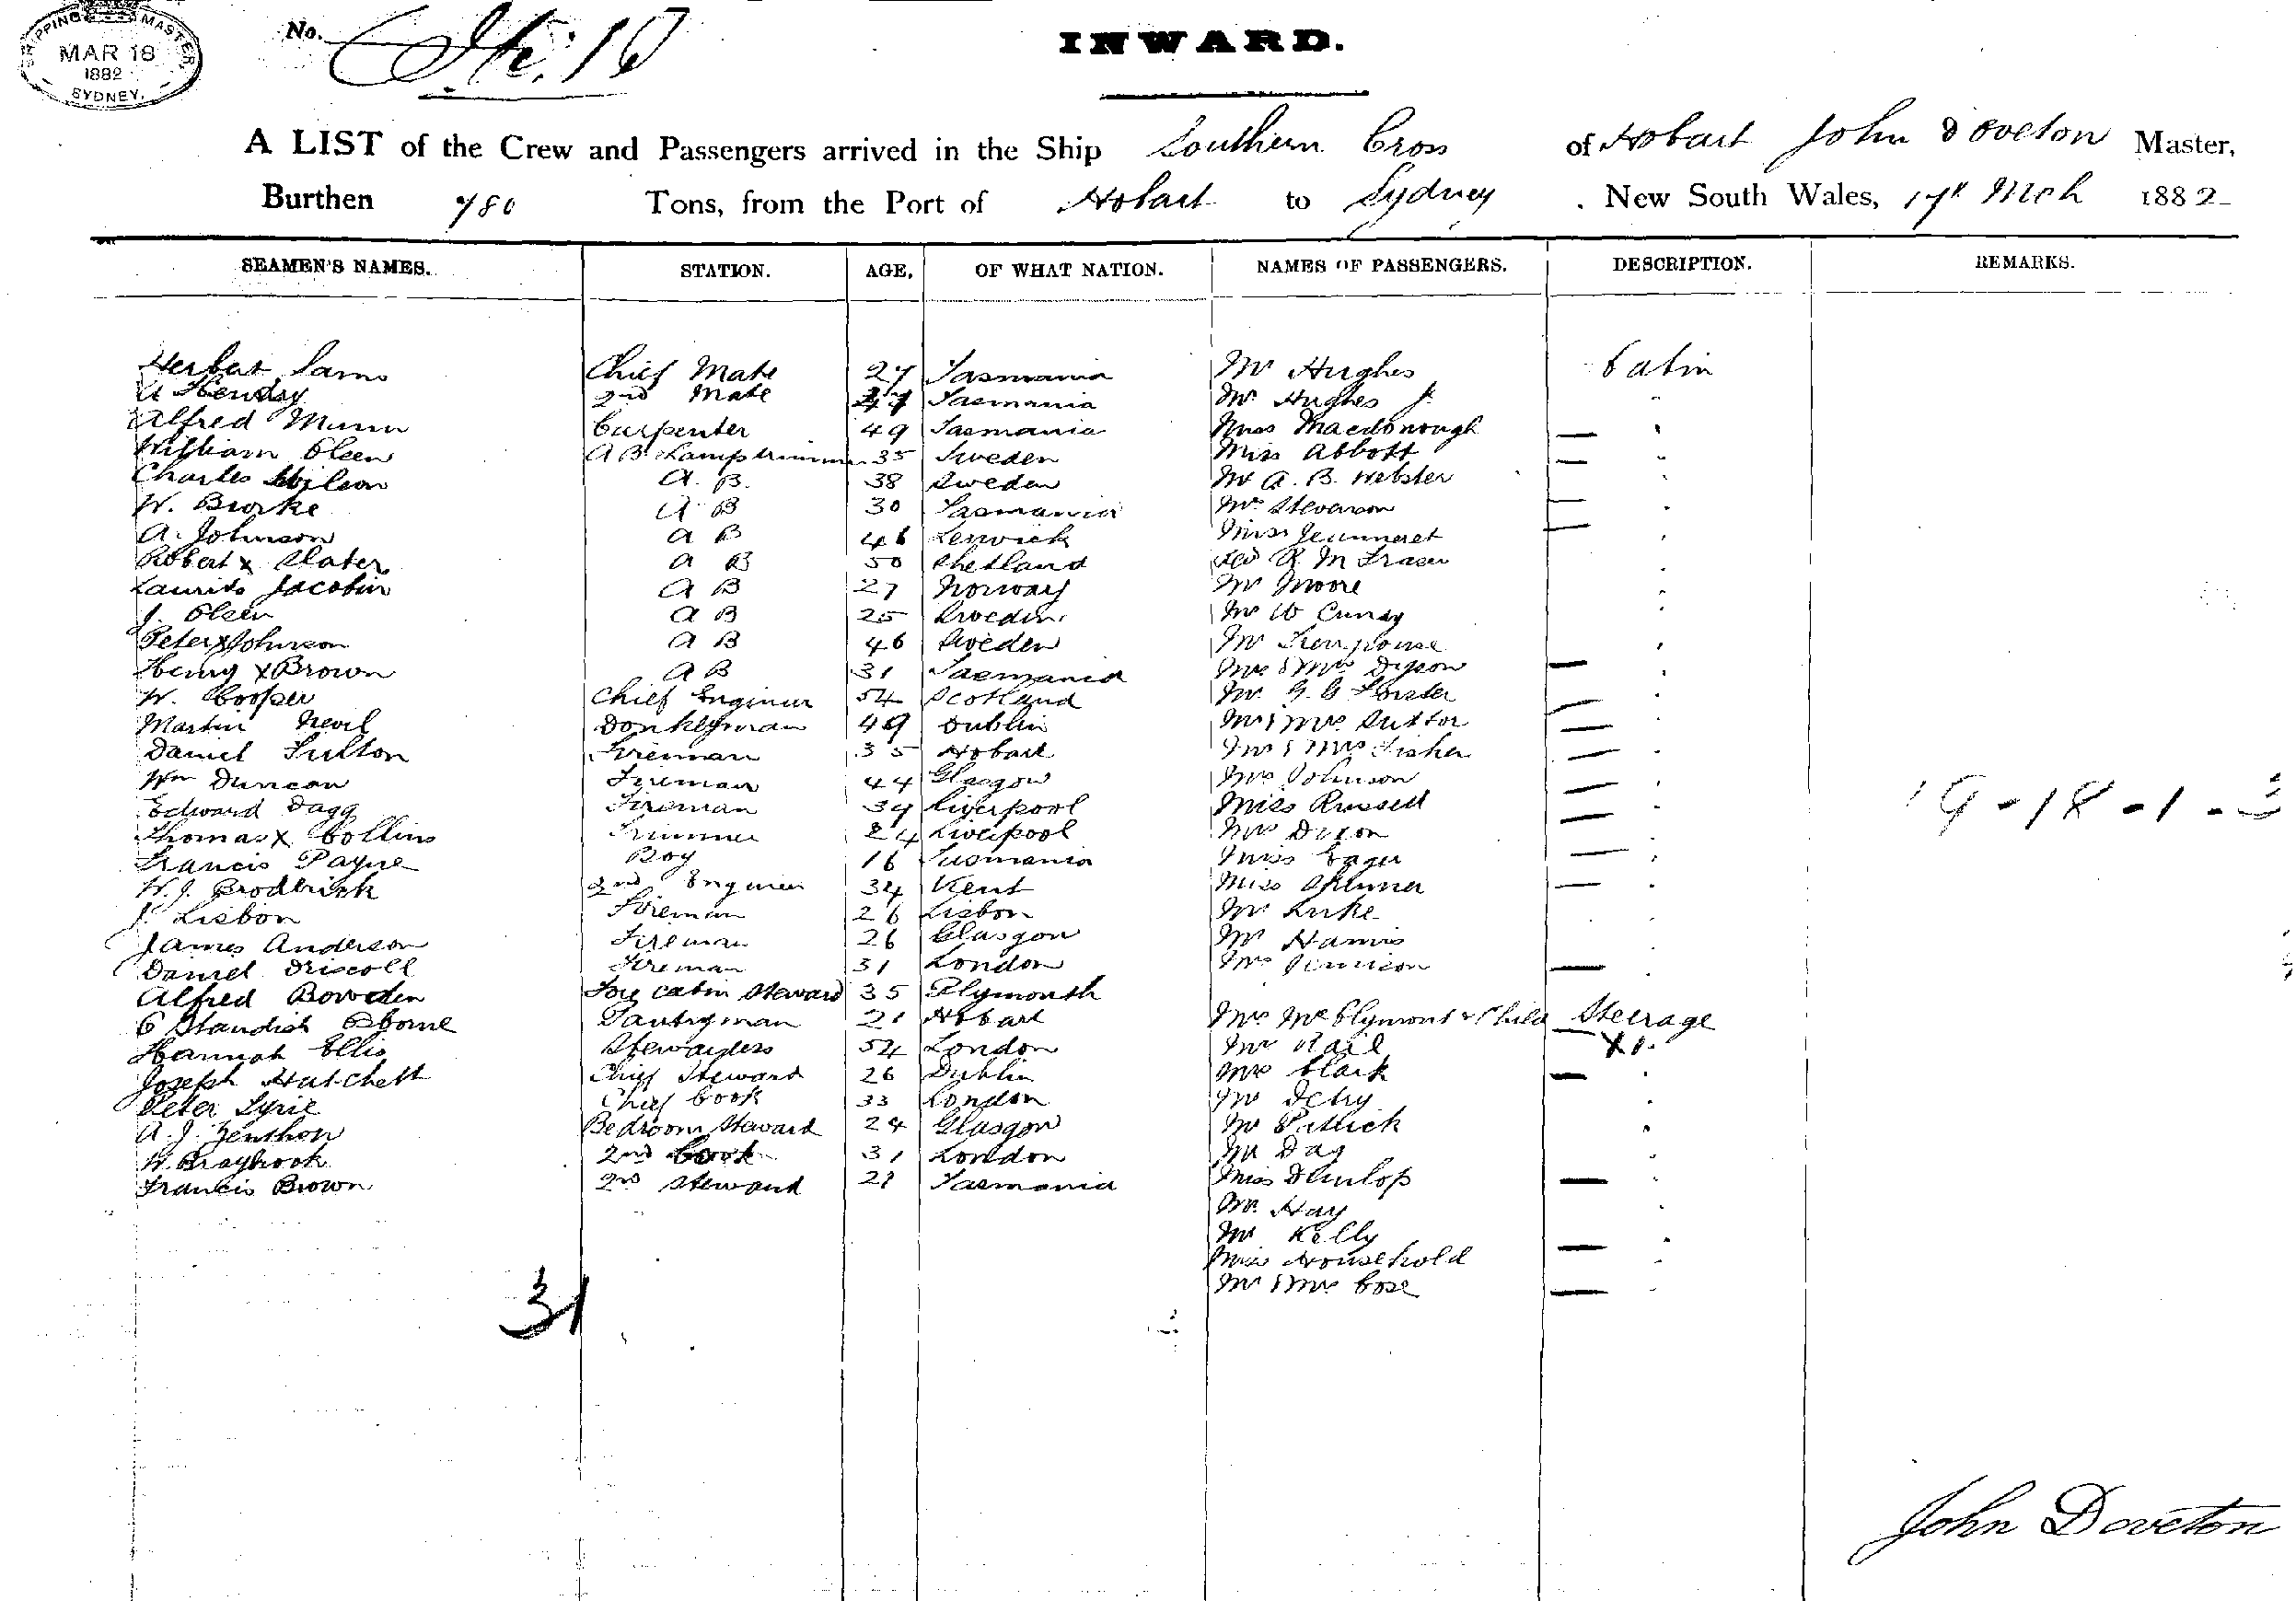 SHIPPING MASTER
MAR 18
1882
SYDNEY.
No.
INWARD.
A LIST of the Crew and Passengers arrived in the Ship Southern Cross of Hobart John Doveton Master,
Burthen 780 Tons, from the Port of Hobart to Sydney . New South Wales, 17th Mch 1882
SEAMEN'S NAMES. STATION. AGE. OF WHAT NATION. NAMES OF PASSENGERS. DESCRIPTION. REMARKS.
Herbert Sams Chief Mate 27 Tasmania Mr Hughes Cabin
Hendry 2nd Mate Tasmania Mr Hughes Jr "
Alfred Munn Carpenter 49 Tasmania Miss Macdonough — "
William Olsen A B Lamptrimmer 35 Sweden Miss Abbott — "
Charles Wilson A. B. 38 Sweden Mr A. B. Webster "
W. Burke A B 30 Tasmania Mrs Stevenson — "
A. Johnson A B 46 Lerwick Miss Jeanneret — "
Robert x Slater A B 50 Shetland Rev R M Fraser "
Laurits Jacobin A B 27 Norway Mr Moore "
J. Olsen A B 25 Sweden Mr W Cundy "
Peter x Johnson A B 46 Sweden Mr "
Henry x Brown A B 31 Tasmania Mr & Mrs — "
W. Cooper Chief Engineer 54 Scotland Mr G. Forster "
Martin Nevil Donkeyman 49 Dublin Mr & Mrs Suttor — "
Daniel Fulton Fireman 35 Hobart Mr & Mrs Fisher — "
Wm Duncan Fireman 44 Glasgow Mrs Johnson — "
Edward Dagg Fireman 39 Liverpool Miss Russell — "
Thomas x Collins Trimmer 24 Liverpool Mrs Dixon — "
Francis Payne Boy 16 Tasmania Miss Eager — "
W. J. Brodbrick 2nd Engineer 34 Kent Miss — "
J. Lisbon Fireman 26 Lisbon Mr Luke "
James Anderson Fireman 26 Glasgow Mr Harris "
Daniel Driscoll Fireman 31 London Mrs — "
Alfred Bowden Fore Cabin Steward 35 Plymouth
C Standish Osborne Pantryman 21 Hobart Mrs McClymont & Child Steerage
Hannah Ellis Stewardess 54 London Mr Rail
Joseph Hatchett Chief Steward 26 Dublin Mrs Clark — "
Peter Chief Cook 33 London Mr "
A. J. Bedroom Steward 24 Glasgow Mr "
W. Braybrook 2nd Cook 31 London Mr Day
Francis Brown 2nd Steward 21 Tasmania Miss Dunlop — "
Mr Hay "
Mr Kelly "
Miss Household — "
Mr & Mrs Cose — "
19-18-1-
31
John Doveton